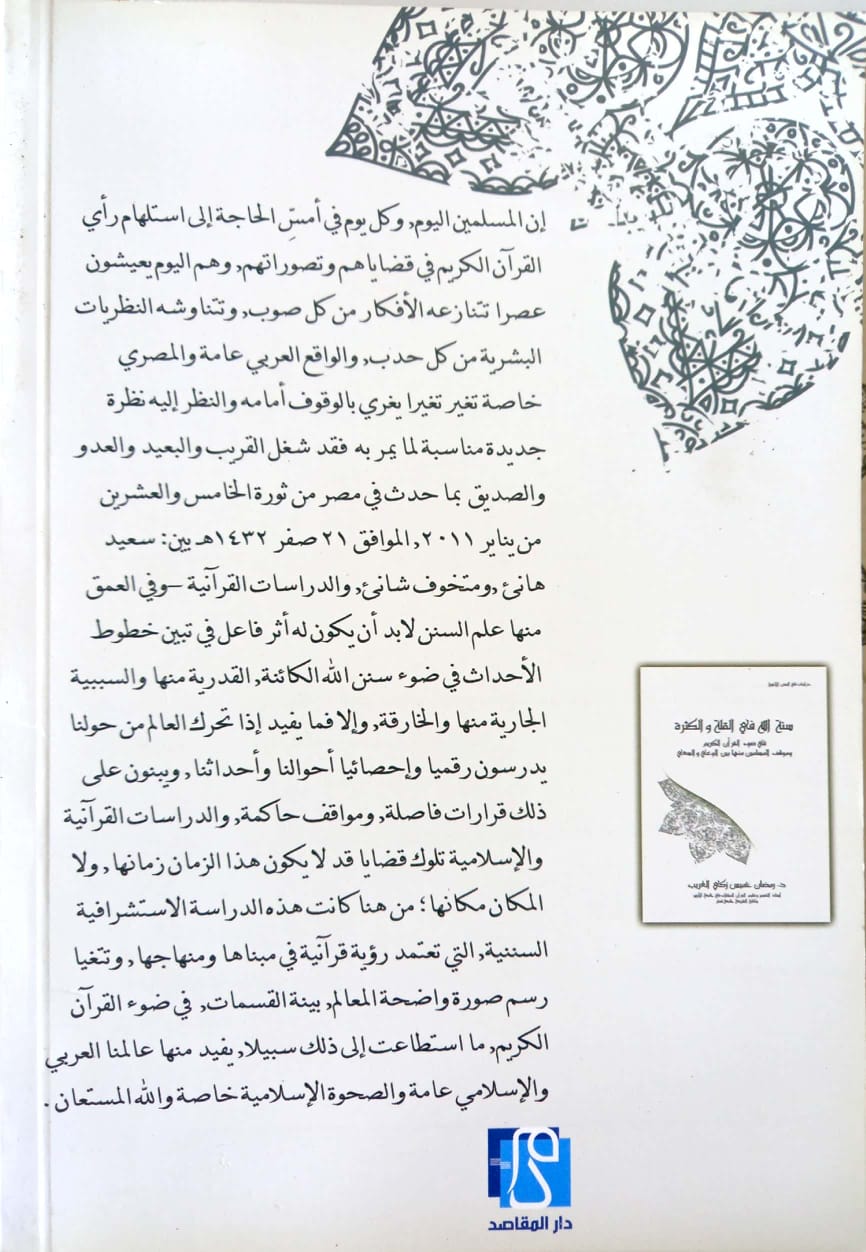 إن المسلمين اليوم, وكل يوم في أمسِّ الحاجة إلى استلهام رأي
القرآن الكريم في قضاياهم وتصوراتهم, وهم اليوم يعيشون
عصرا تتنازعه الأفكار من كل صوب, وتتناوشه النظريات
البشرية من كل حدب, والواقع العربي عامة والمصري
خاصة تغير تغيرا يغري بالوقوف أمامه والنظر إليه نظرة
جديدة مناسبة لما يمر به فقد شغل القريب والبعيد والعدو
والصديق بما حدث في مصر من ثورة الخامس والعشرين
من يناير ٢٠١١, الموافق ٢١ صفر ١٤٣٢هـ بين: سعيد
هانئ ,ومتخوف شانئ, والدراسات القرآنية –وفي العمق
منها علم السنن لابد أن يكون له أثر فاعل في تبين خطوط
الأحداث في ضوء سنن الله الكائنة, القدرية منها والسببية
الجارية منها والخارقة, وإلا فما يفيد إذا تحرك العالم من حولنا
يدرسون رقميا وإحصائيا أحوالنا وأحداثنا, ويبنون على
ذلك قرارات فاصلة, ومواقف حاكمة, والدراسات القرآنية
والإسلامية تلوك قضايا قد لا يكون هذا الزمان زمانها, ولا
المكان مكانها؛ من هنا كانت هذه الدراسة الاستشرافية
السننية, التي تعتمد رؤية قرآنية في مبناها ومنهاجها, وتتغيا
رسم صورة واضحة المعالم, بينة القسمات, في ضوء القرآن
الكريم, ما استطاعت إلى ذلك سبيلا, يفيد منها عالمنا العربي
والإسلامي عامة والصحوة الإسلامية خاصة والله المستعان .
سنة الله في القلة والكثرة
في ضوء القرآن الكريم
وموقف المسلمين منها بين الوعي والسعي
د. رمضان خميس زكي الغريب
دار المقاصد